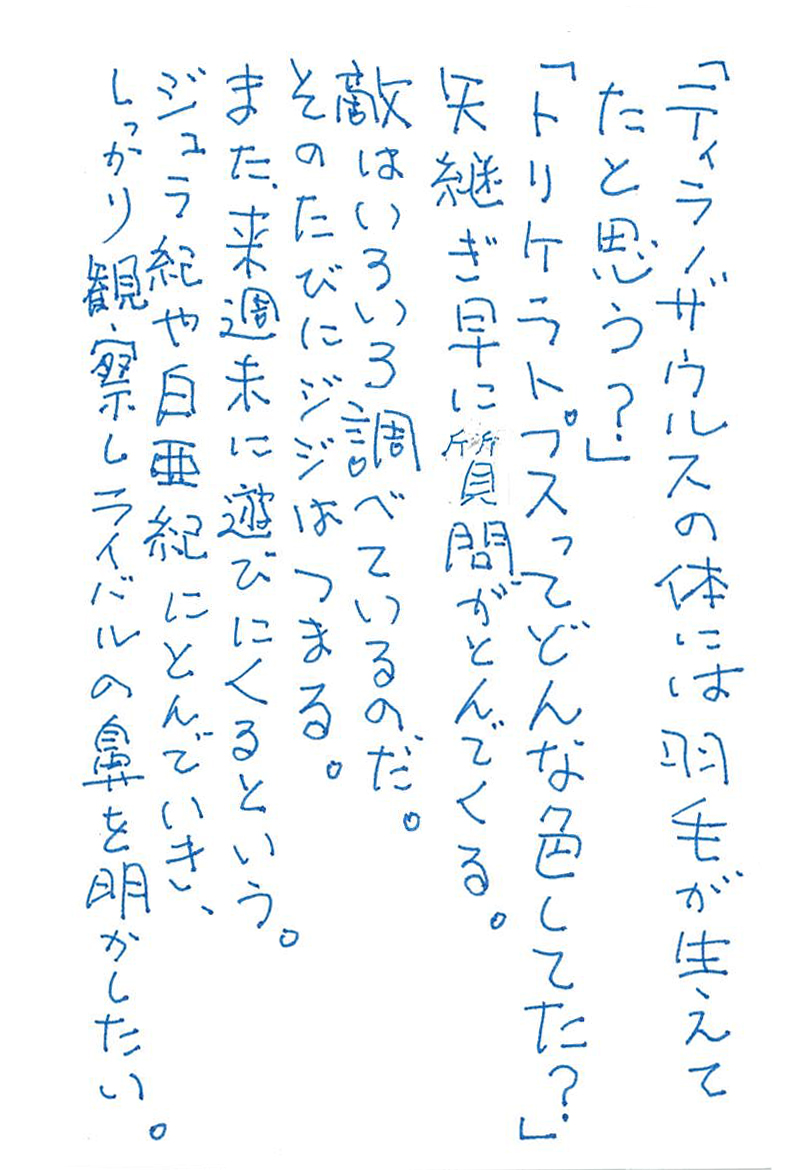 「ティラノザウルスの体には羽毛が生えて
たと思う?」
「トリケラトプスってどんな色してた?」
矢継ぎ早に質問がとんでくる。
敵はいろいろ調べているのだ。
そのたびにジジはつまる。
また、来週末に遊びにくるという。
ジュラ紀や白亜紀にとんでいき、
しっかり観察しライバルの鼻を明かしたい。